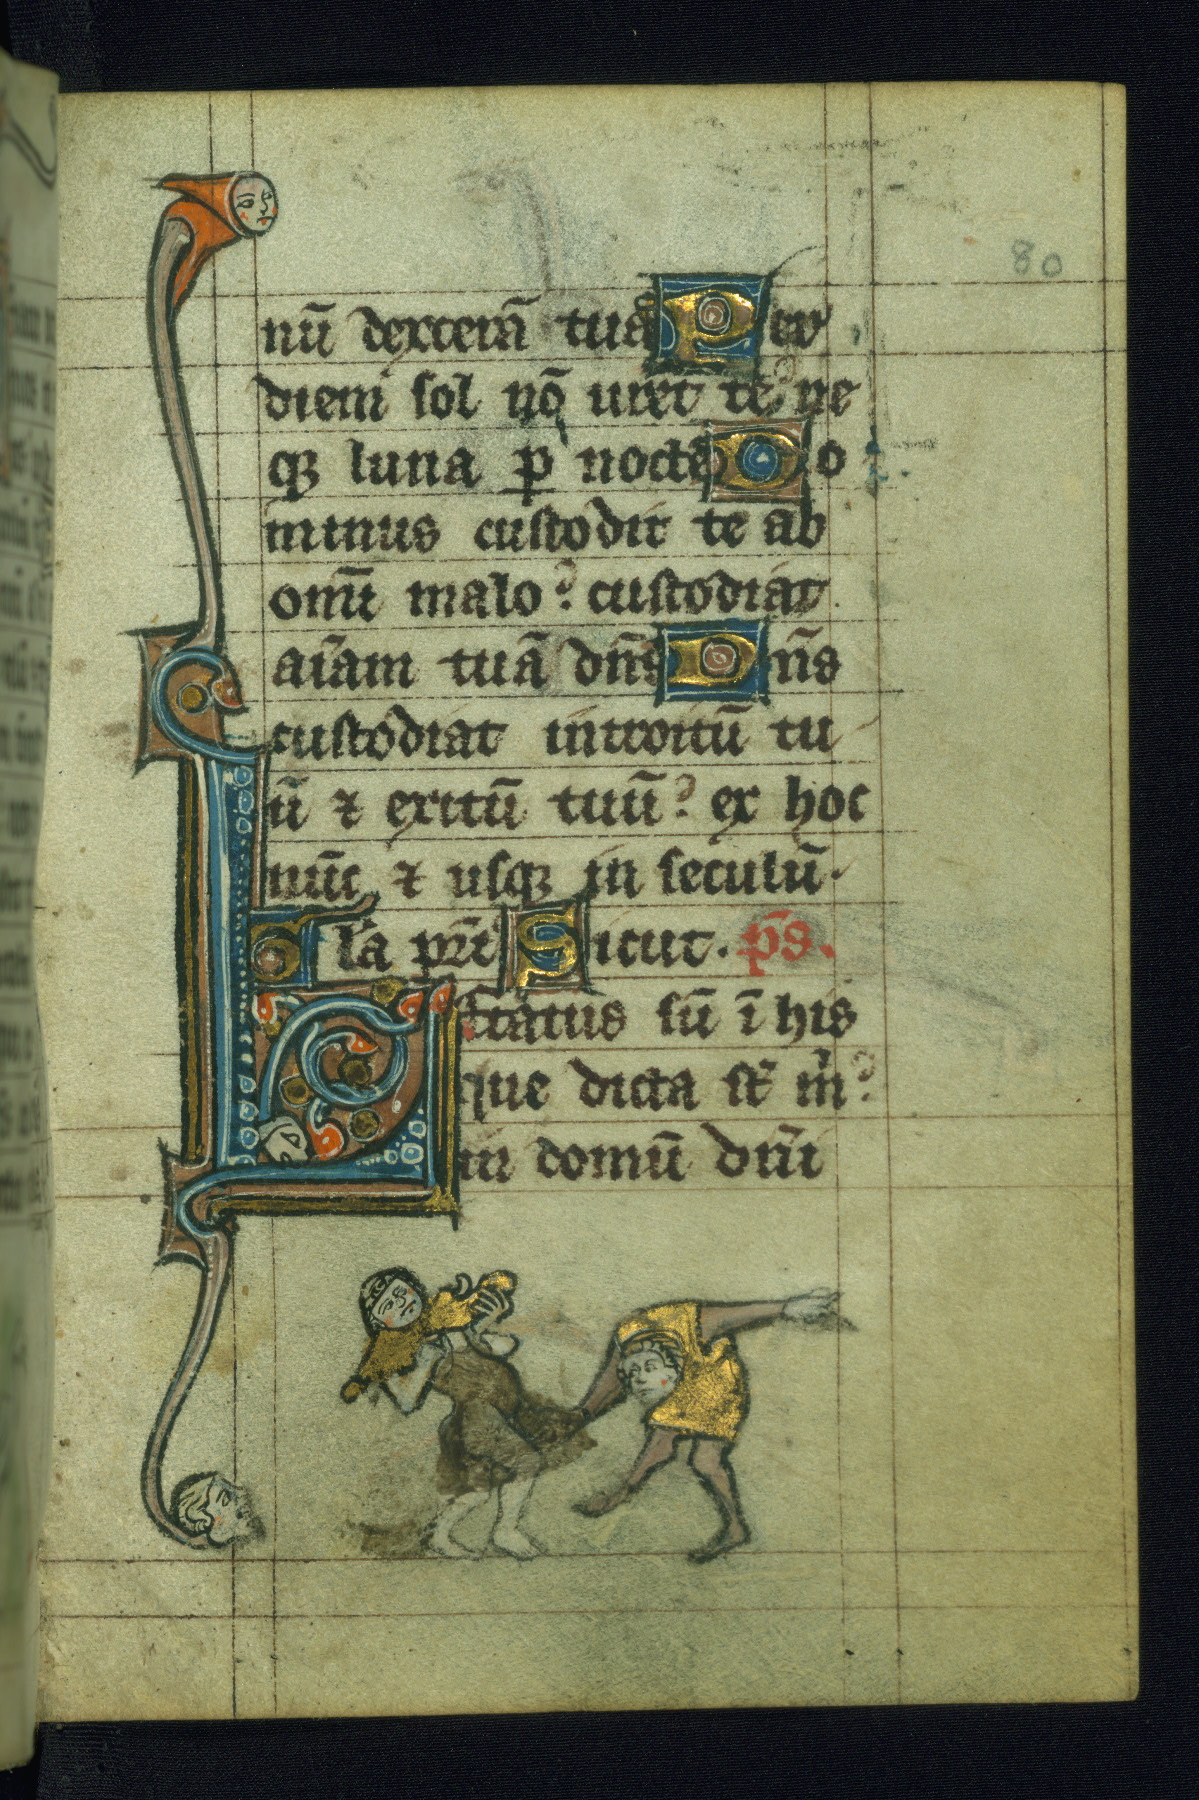 80
nū dexterā tuā Per
diem sol nō uret te ne
qꝫ luna ꝑ noctē Do
minus custodit te ab
omī malo? custodiat
aīam tuā dn̄s Dn̄s
custodiat introitū tu
ū ⁊ exitū tuū? ex hoc
nūc ⁊ usqꝫ in seculū.
Gl'a pr̄i Sicut. p̄s.
Letatus sū ī his
que dicta st̄ m̄?
in domū dn̄i